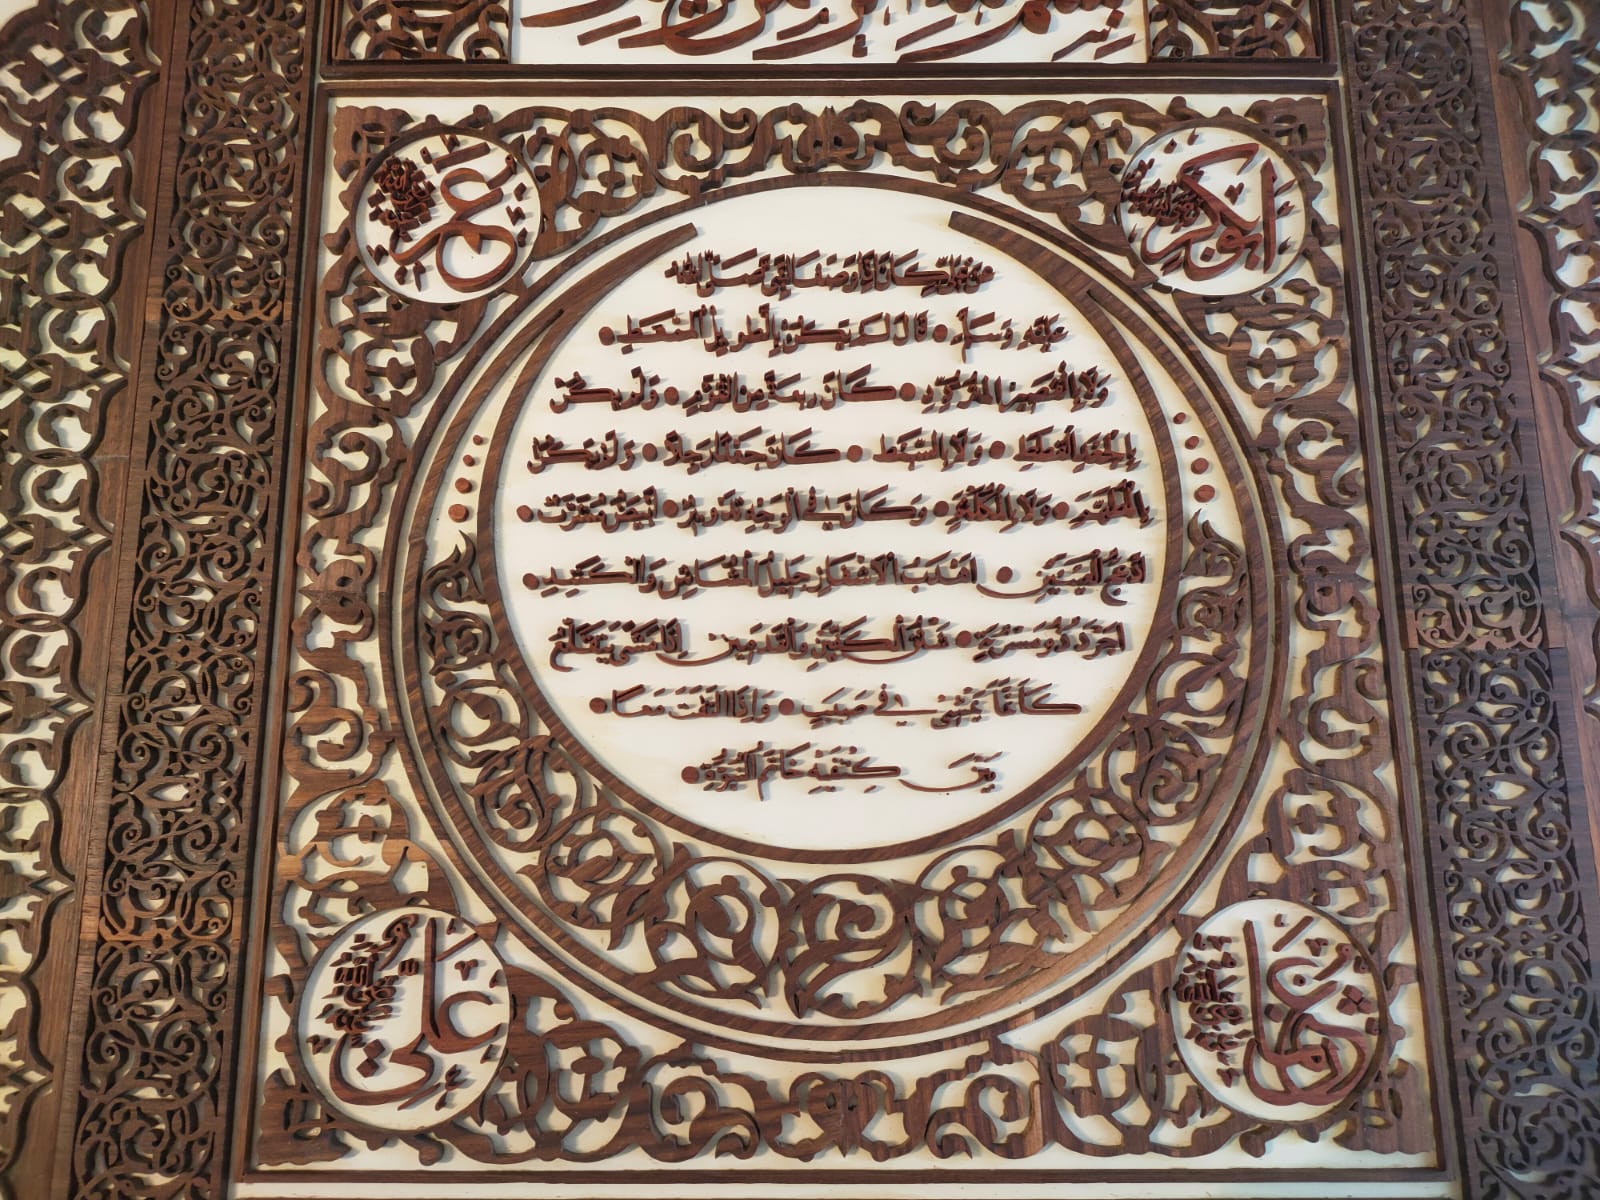 بسم الله الرحمن الرحيم
ابو بكر رضي الله عنه
عمر رضي الله عنه
عن علي كان اذا وصف النبي صلى الله
عليه وسلم • قال لم يكن بالطويل الممغط •
ولا بالقصير المتردد • كان ربعة من القوم • ولم يكن
بالجعد القطط • ولا بالسبط • كان جعدا رجلا • ولم يكن
بالمطهم • ولا بالمكلثم • وكان في الوجه تدوير • ابيض مشرب •
ادعج العينين • اهدب الاشفار • جليل المشاش والكتد •
اجرد ذو مسربة • شثن الكفين والقدمين اذا مشى يتقلع
كأنما يمشي في صبب • واذا التفت التفت معا •
بين كتفيه خاتم النبوة •
عثمان رضي الله عنه
علي رضي الله عنه